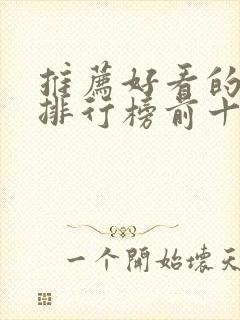 推薦好看的
排行榜前十
一个開始壞天